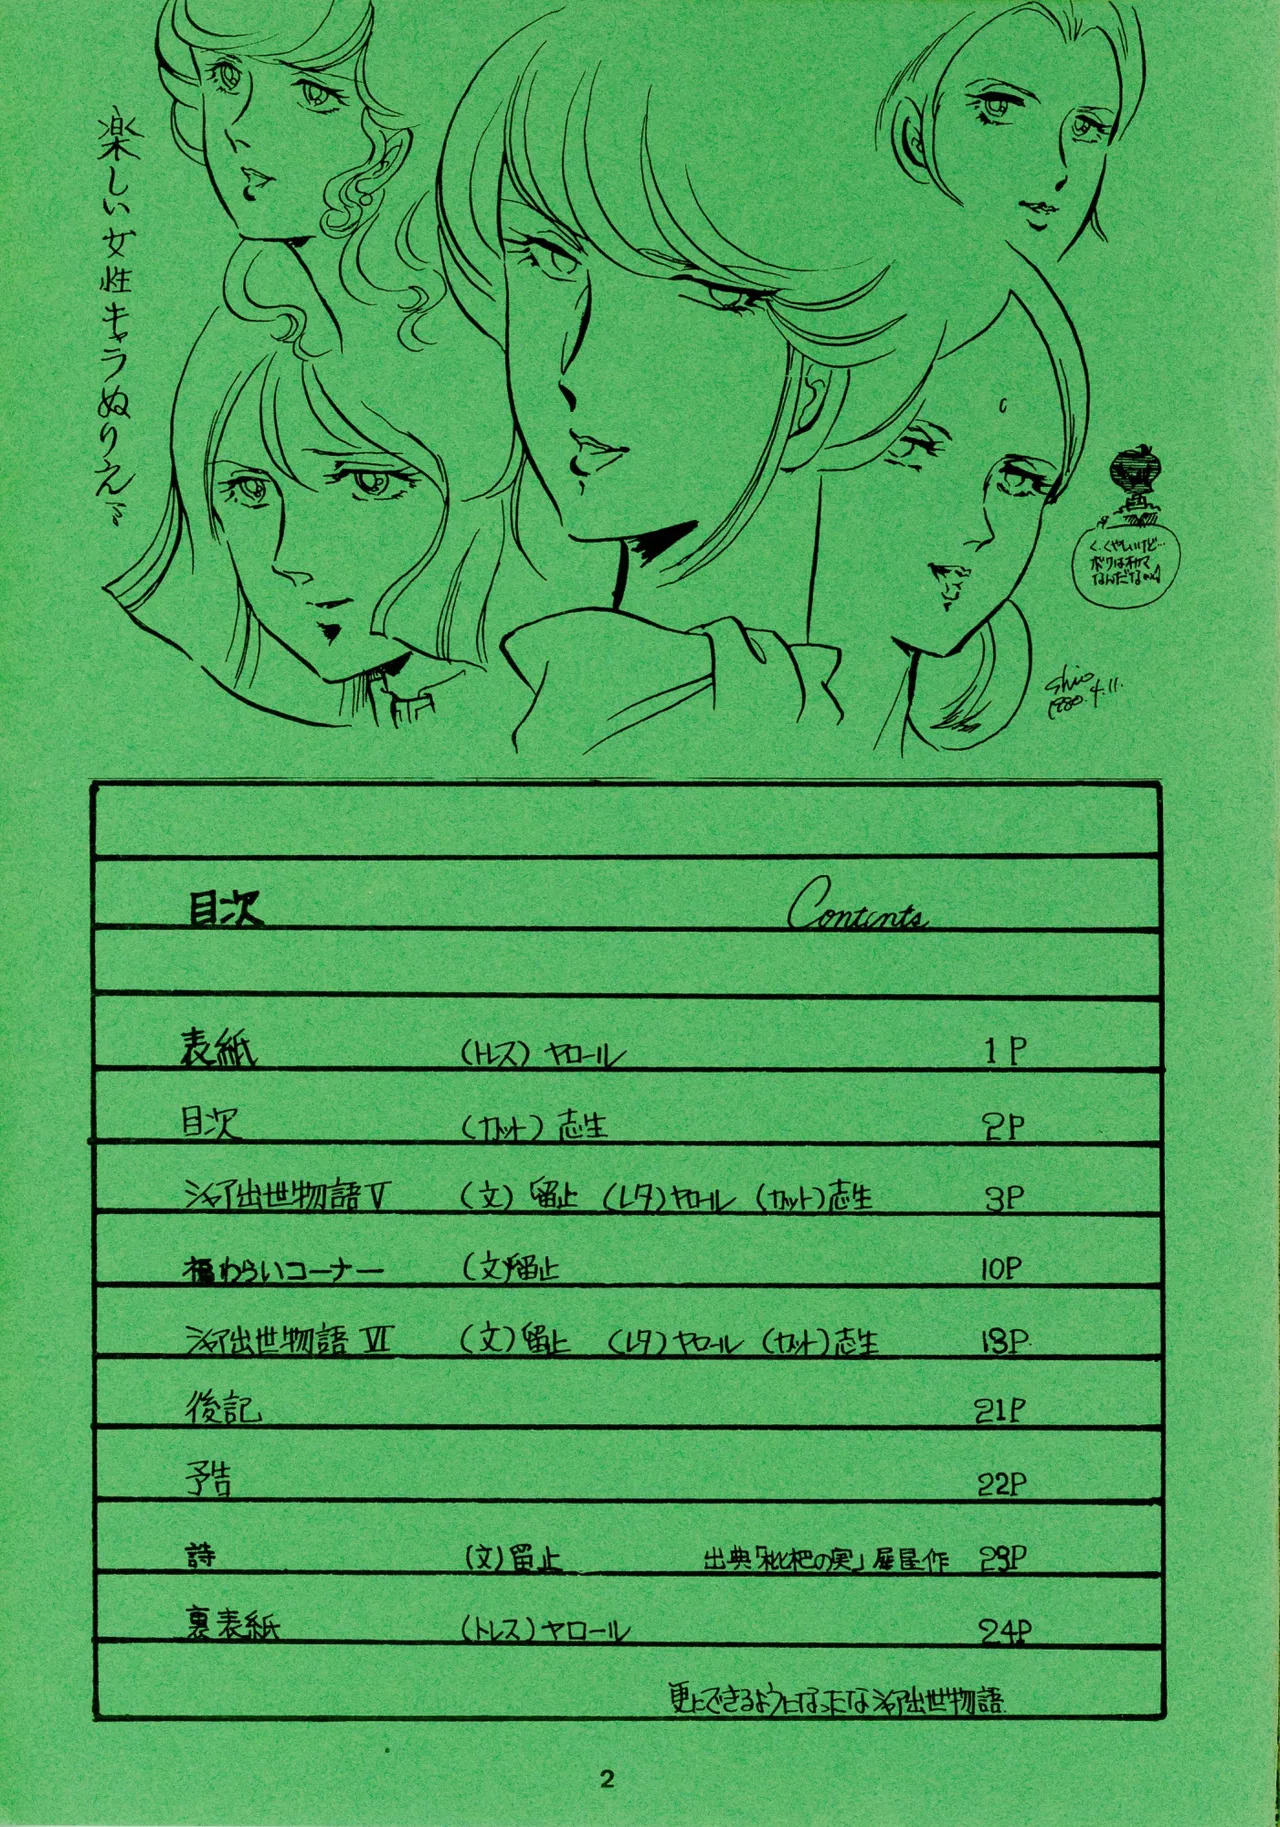 楽しい女性キャラぬりえ
く、くやしいけど…
ボクはオカマ
なんだなの
Shio
1980.4.11.
目次 Contents
表紙 (トレス)ヤロール 1P
目次 (カット)志生 2P
シャア出世物語V (文)留止 (レタ)ヤロール (カット)志生 3P
福わらいコーナー (文)留止 10P
シャア出世物語VI (文)留止 (レタ)ヤロール (カット)志生 13P
後記 21P
予告 22P
詩 (文)留止 出典「枇杷の実」犀星作 23P
裏表紙 (トレス)ヤロール 24P
更にできるようになったなシャア出世物語
2